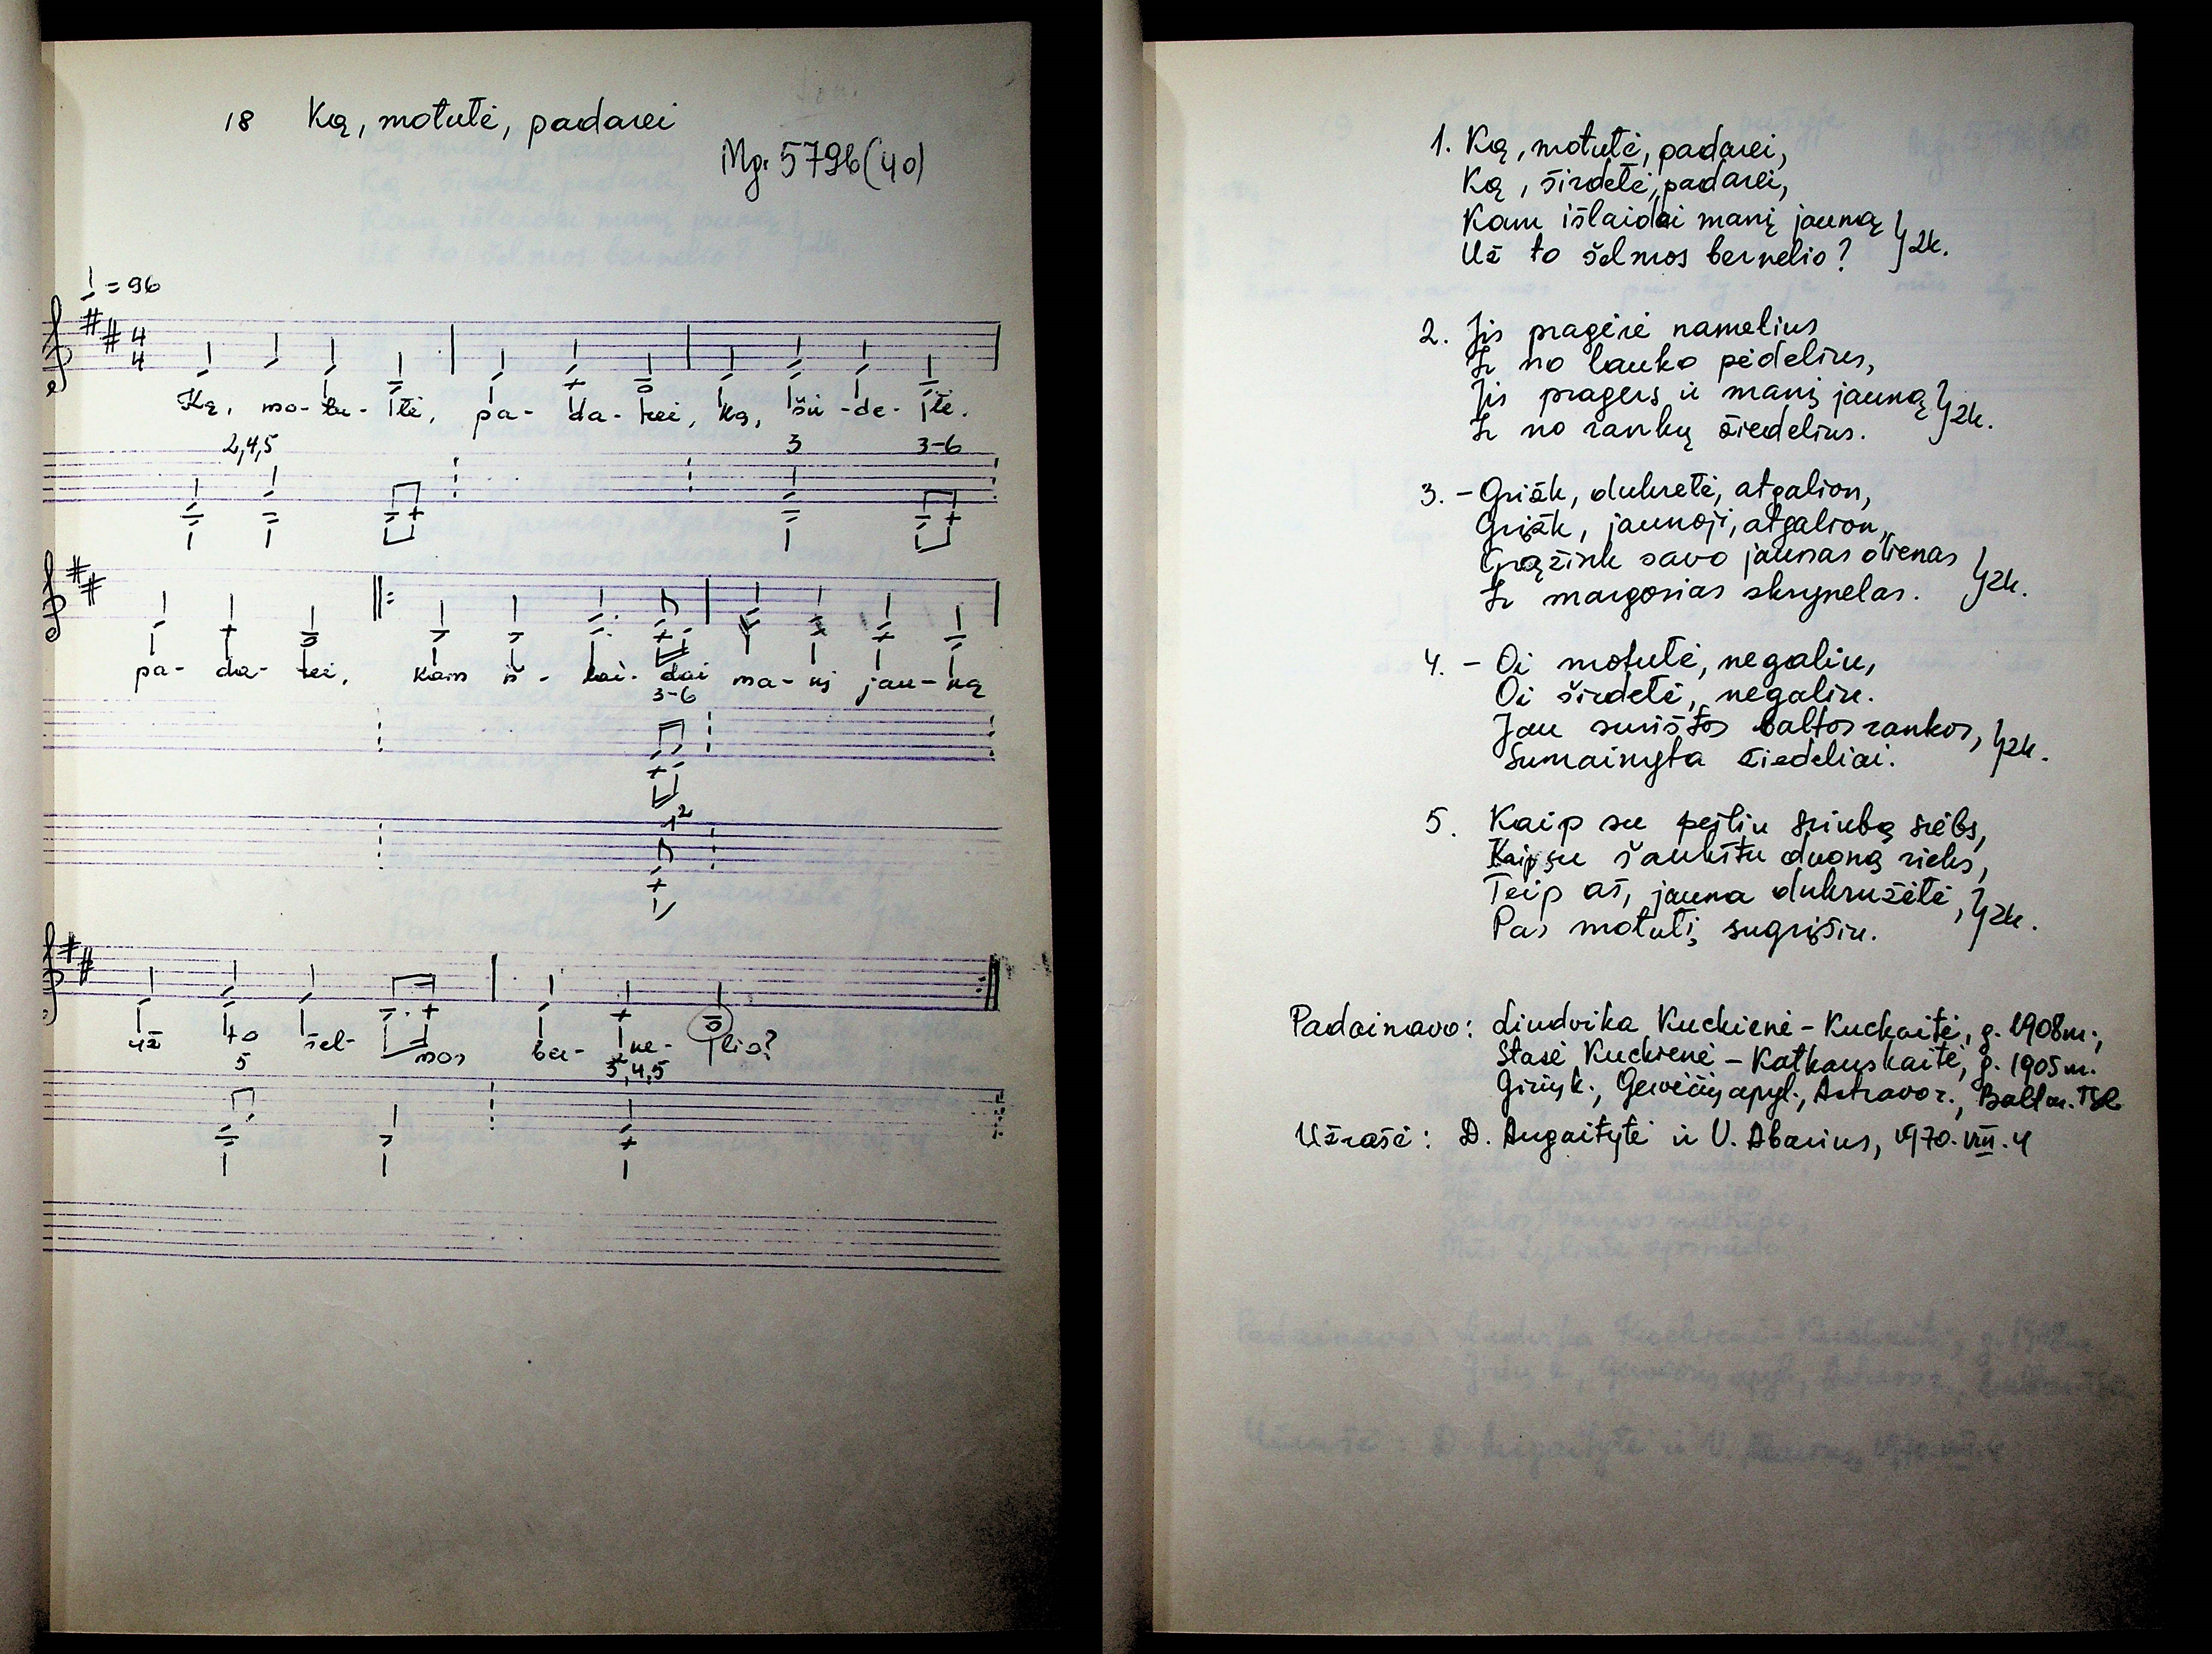 18 Ką, motutė, padarei
Mg. 5796(40)
= 96
4
4
Ką, mo-tu-tė, pa-da-rei, ką, šir-de-tė.
2,4,5 3 3-6
pa-da-rei, kam iš-lai-dai ma-nį jau-ną
3-6
1 2
už to šel-mos ber-ne-lio?
5 3,4,5
1. Ką, motutė, padarei,
Ką, širdetė, padarei,
Kam išlaidai manį jauną
Už to šelmos bernelio? } 2k.
2. Jis pragėrė namelius
Ir no lauko pėdelius,
Jis pragers ir manį jauną } 2k.
Ir no rankų žiedelius.
3. - Grįžk, dukretė, atgalion,
Grįžk, jaunoji, atgalion,
Grąžink savo jaunas dienas
Ir margosias skrynelas. } 2k.
4. - Oi motutė, negaliu,
Oi širdetė, negaliu.
Jau surištos baltos rankos, } 2k.
Sumainyta žiedeliai.
5. Kaip su peiliu sriubą srėbs,
Kaip su šaukštu duoną rieks,
Teip aš, jauna dukružėtė, } 2k.
Pas motutį sugrįšiu.
Padainavo: Liudvika Kuckienė - Kuckaitė, g. 1908 m.,
Stasė Kuckienė - Katkauskaitė, g. 1905 m.
Girių k., Gervėčių apyl., Astravo r., Balt
Užrašė: D. Augaitytė ir V. Abarius, 1970. VIII. 4